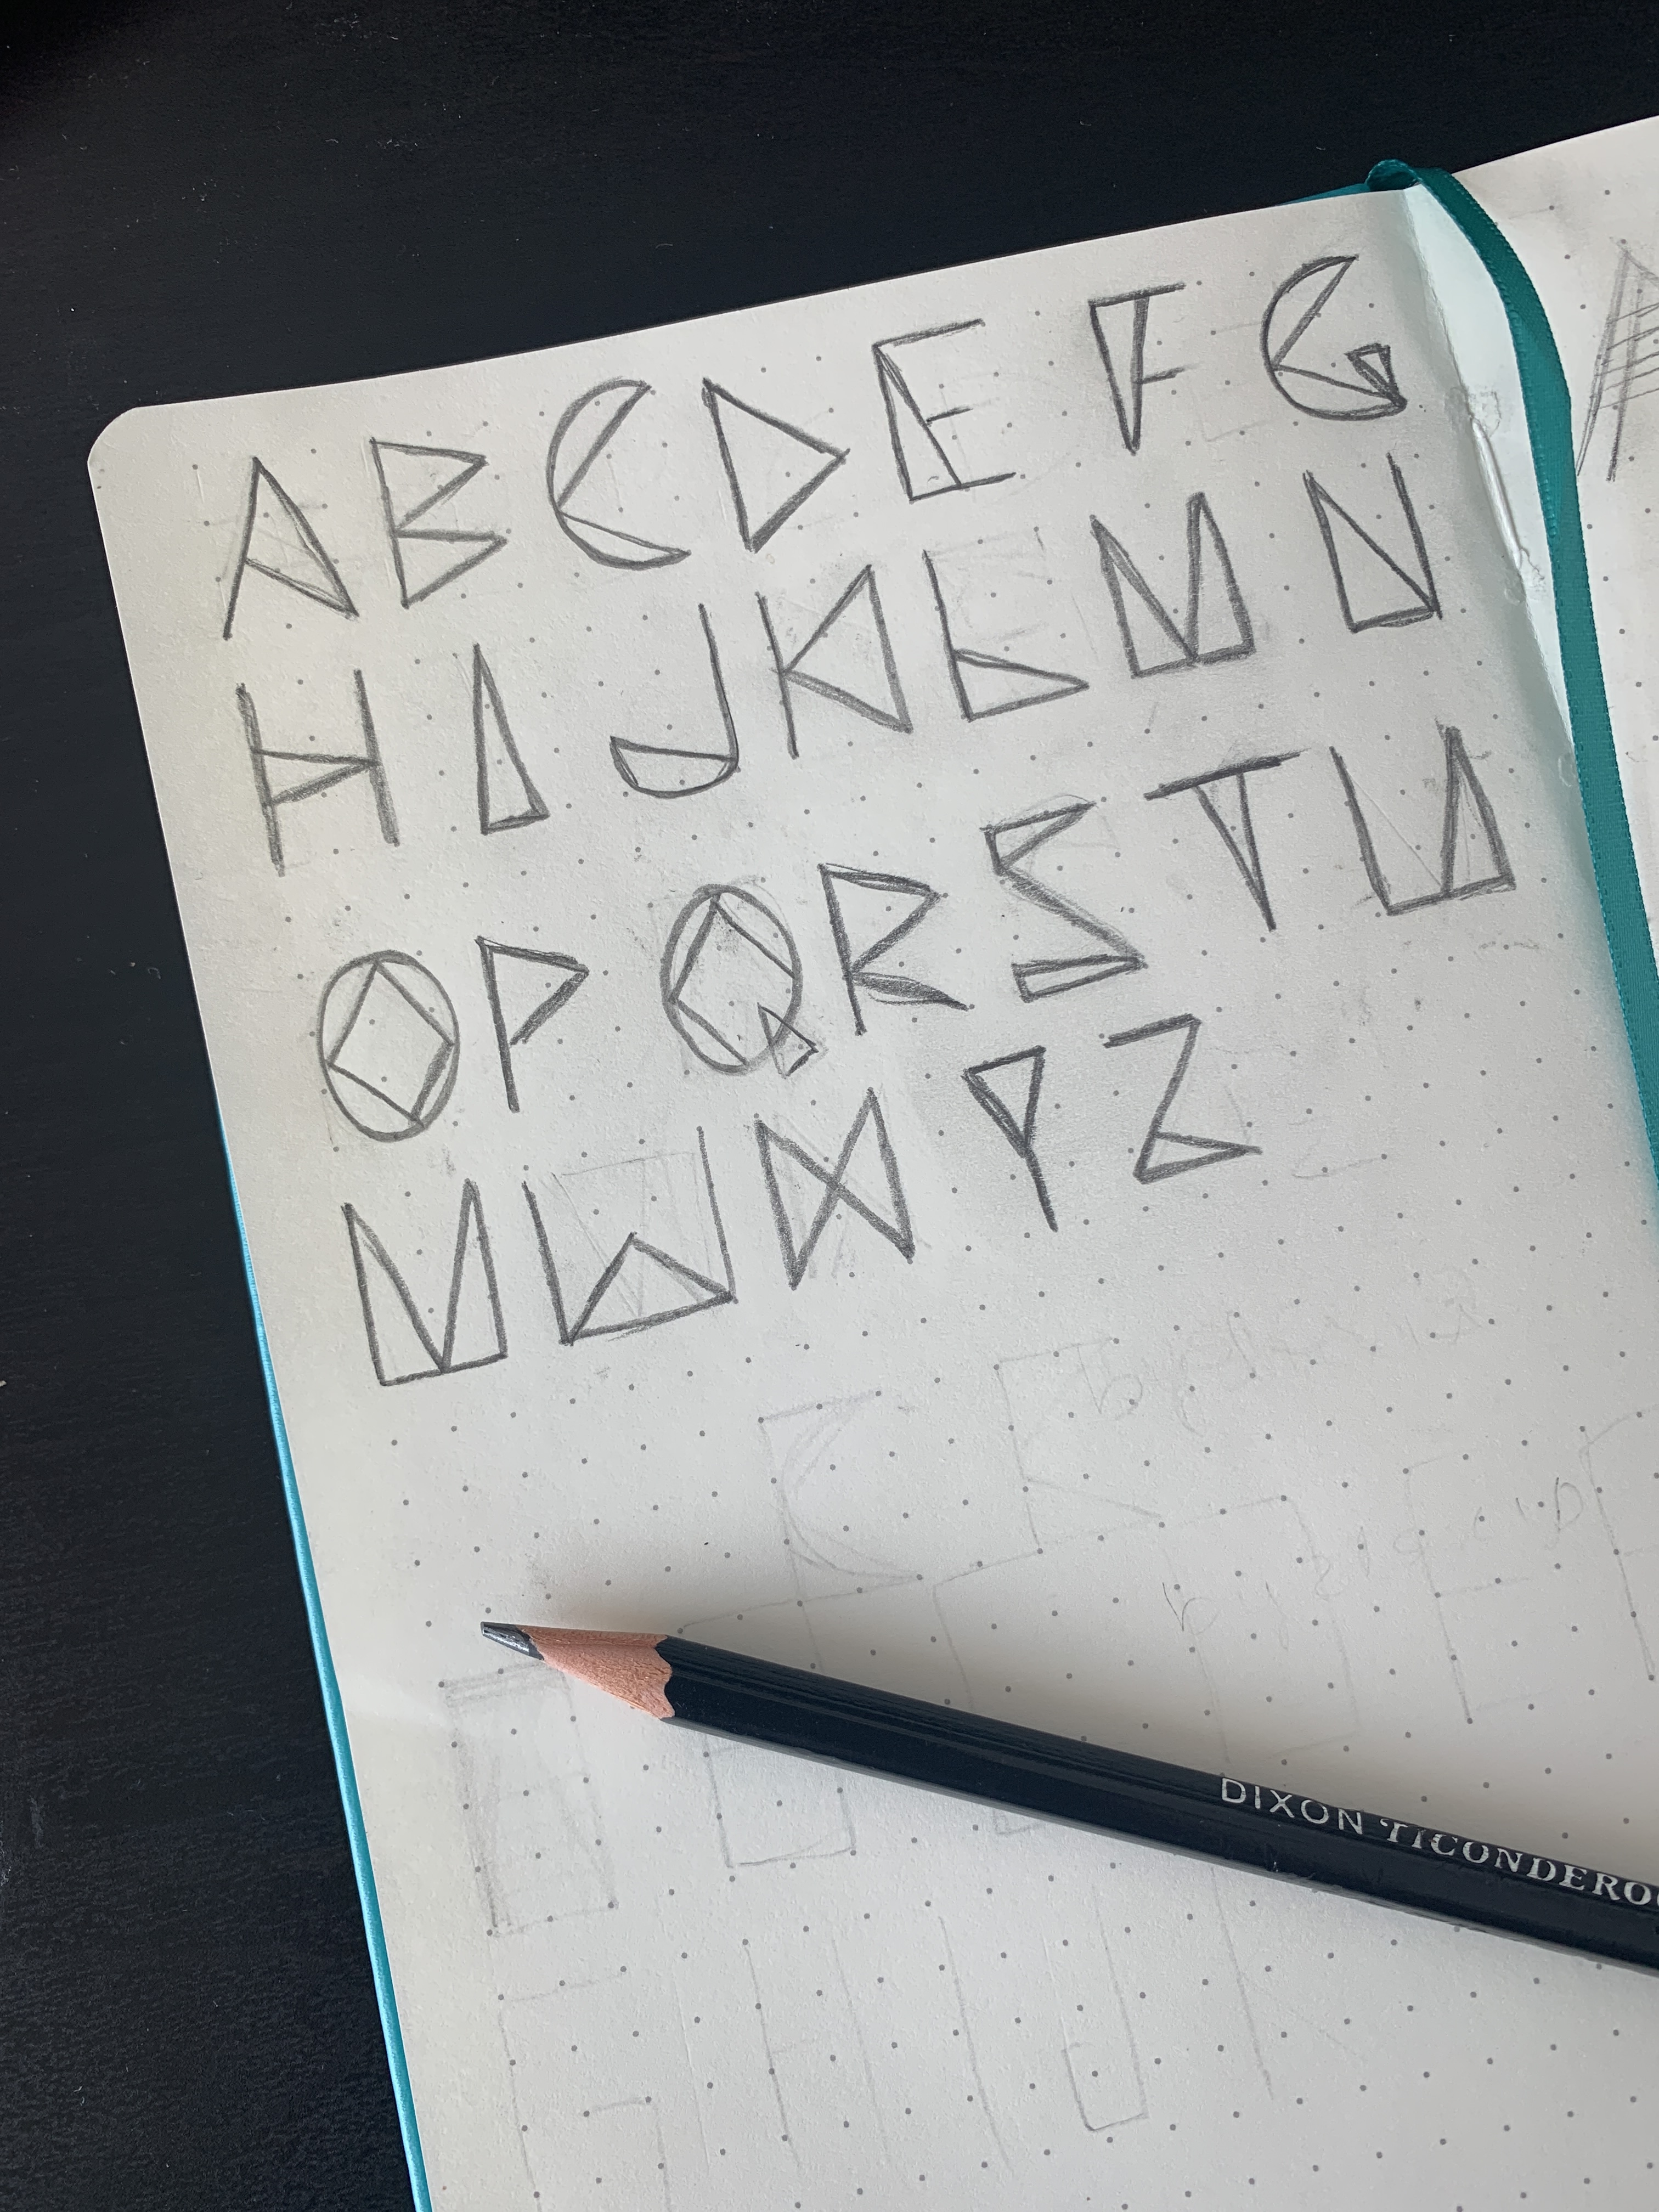 A B C D E F G
H I J K L M N
O P Q R S T U
V W X Y Z
DIXON TICONDEROG